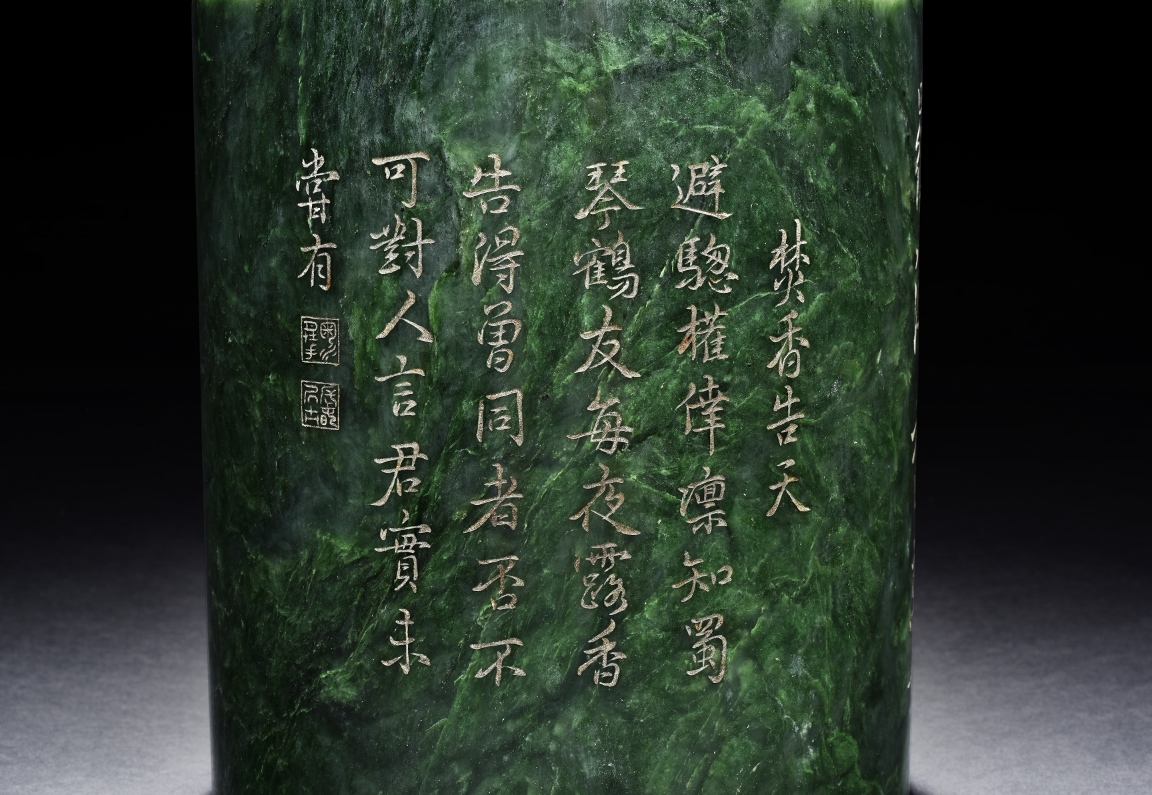 焚香告天
避驄權倖凛知蜀
琴鶴友每夜露香
告得曽同者否不
可對人言君實未
嘗有